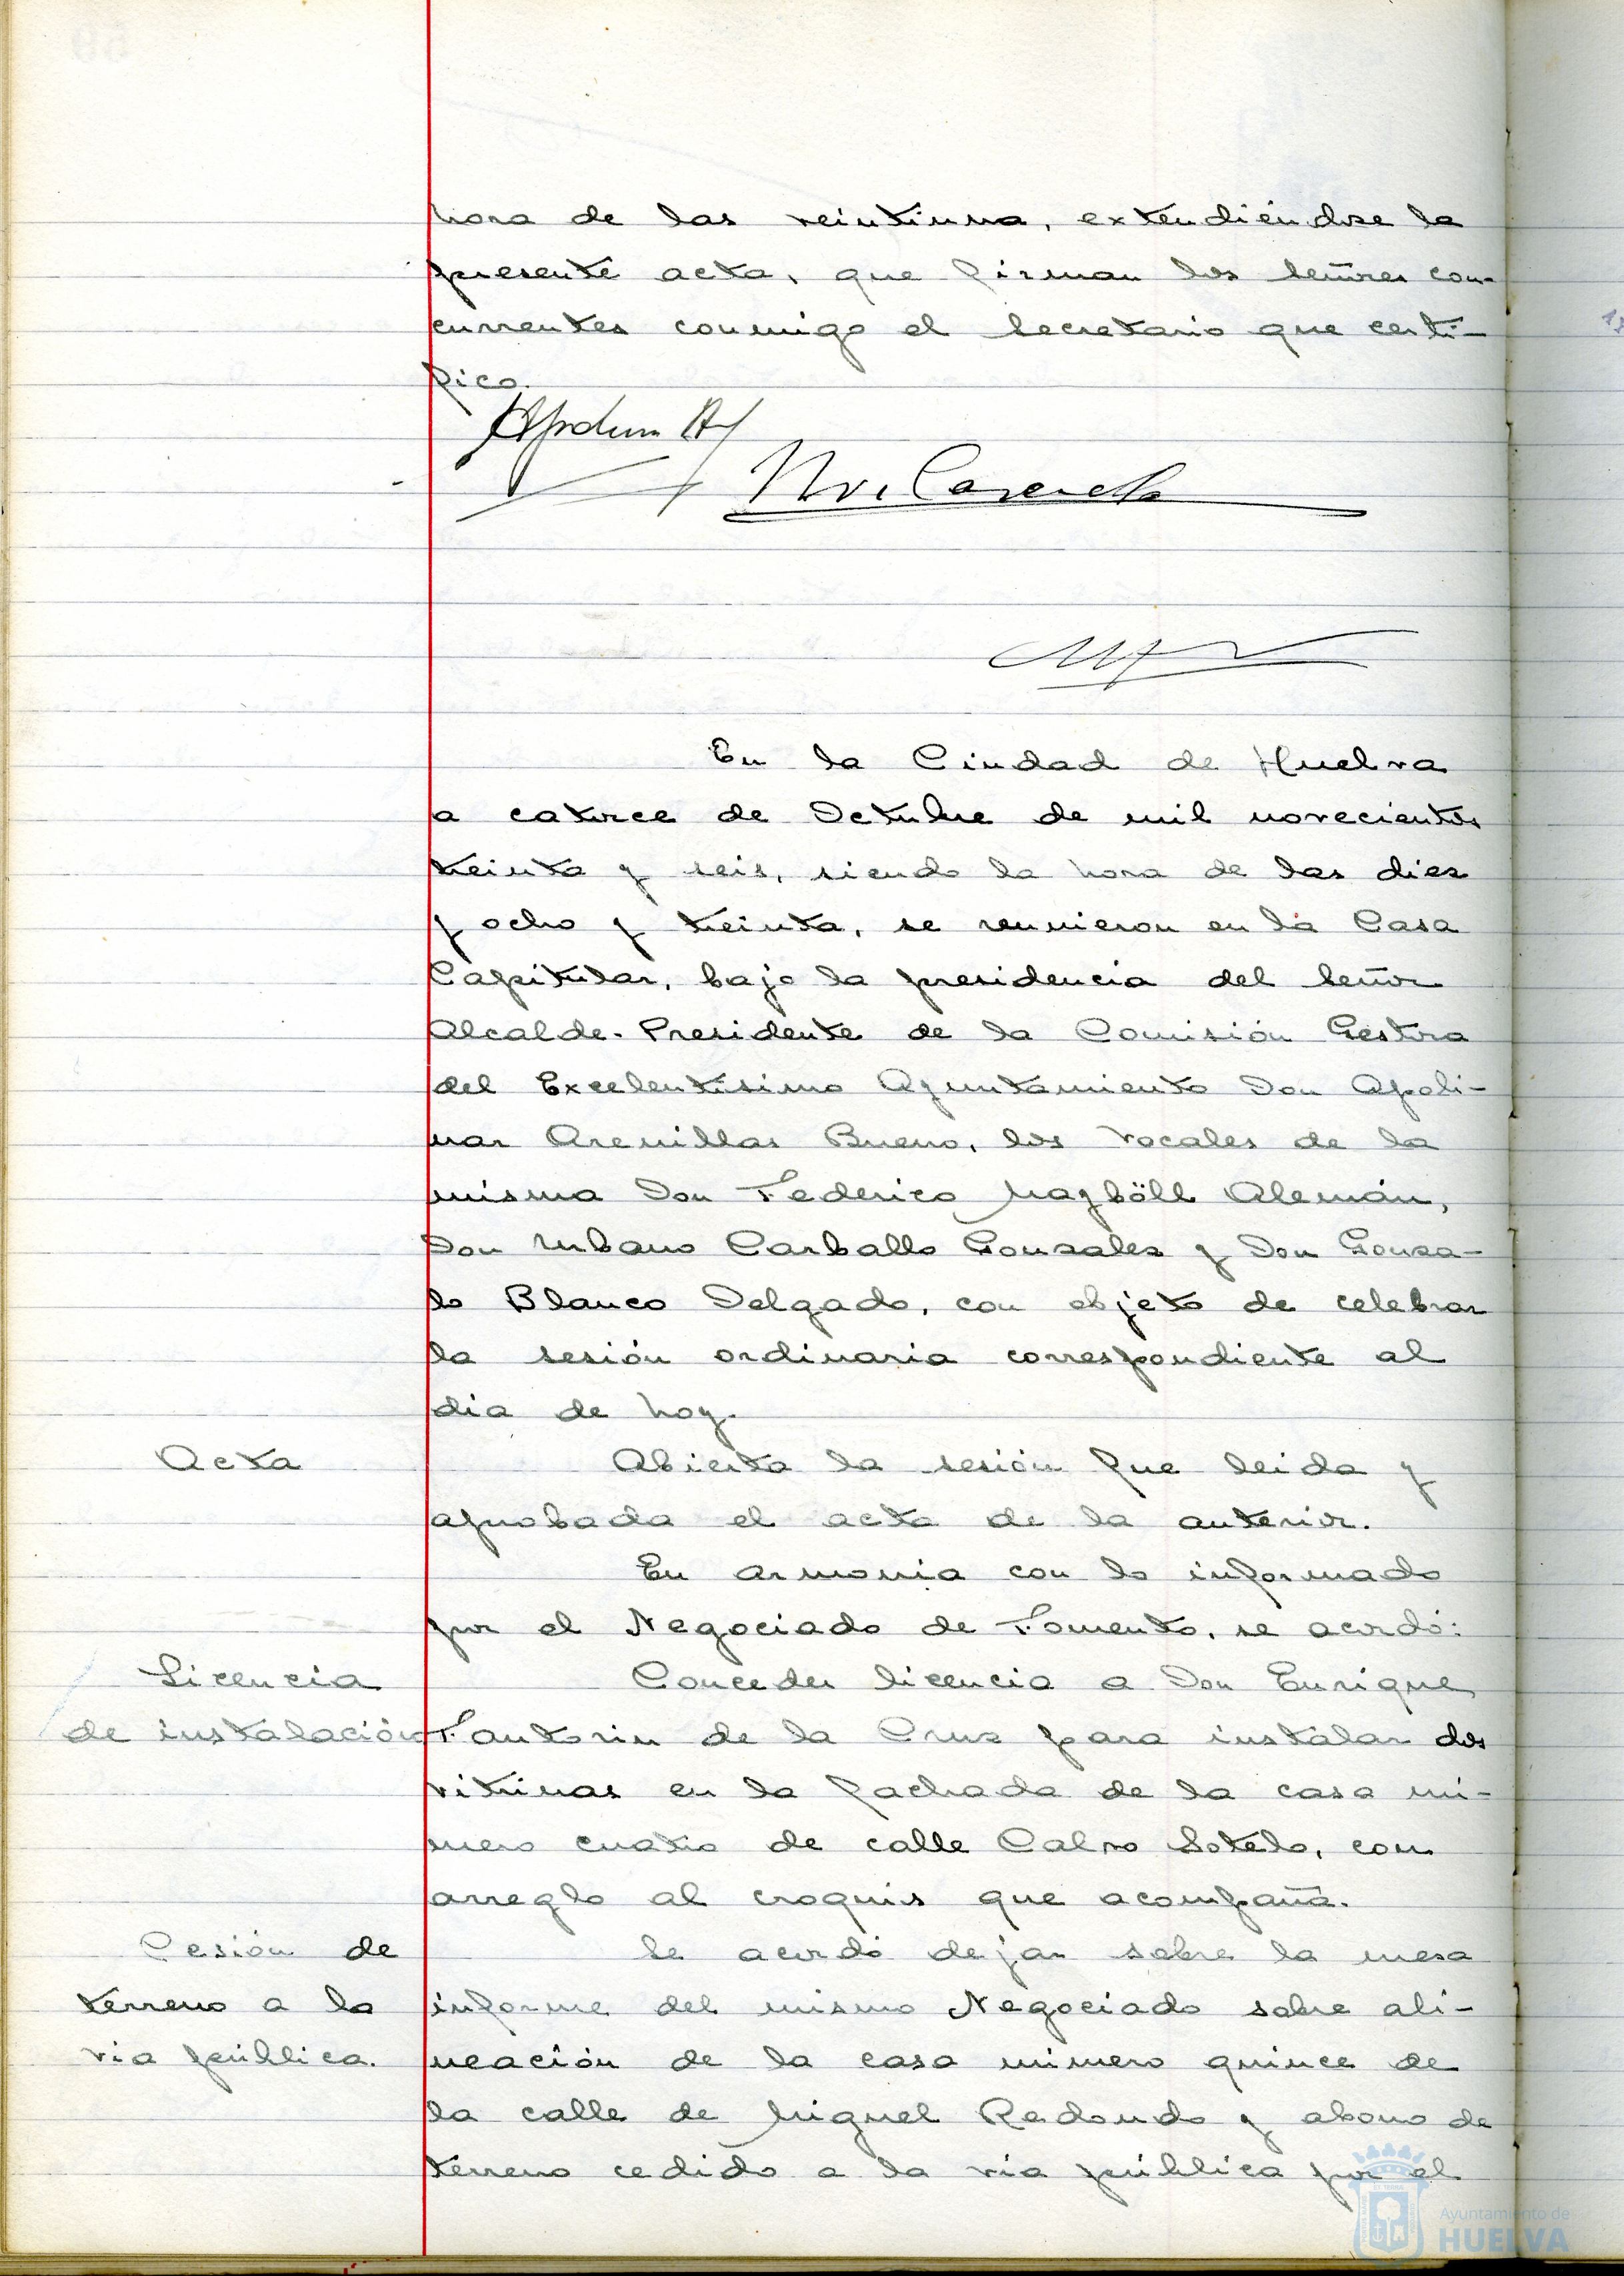 hora de las veintiuna, extendiéndose la
presente acta, que firman los señores con-
currentes conmigo el Secretario que certi-
fico.
En la Ciudad de Huelva
a catorce de Octubre de mil novecientos
treinta y seis, siendo la hora de las diez
y ocho y treinta, se reunieron en la Casa
Capitular, bajo la presidencia del Señor
Alcalde-Presidente de la Comisión Gestora
del Excelentísimo Ayuntamiento Don Apoli-
nar Arenillas Bueno, los vocales de la
misma Don Federico Magböll Alemán,
Don Urbano Carballo Gonzales y Don Gonza-
lo Blanco Delgado, con objeto de celebrar
la sesión ordinaria correspondiente al
dia de hoy.
Acta
Abierta la sesión fue leida y
aprobada el acta de la anterior.
En armonia con lo informado
por el Negociado de Fomento, se acordó:
Licencia
de instalación
Conceder licencia a Don Enrique
Fantorin de la Cruz para instalar dos
vitrinas en la fachada de la casa nú-
mero cuatro de calle Calvo Sotelo, con
arreglo al croquis que acompaña.
Cesión de
terreno a la
via pública.
Se acordó dejar sobre la mesa
informe del mismo Negociado sobre ali-
neación de la casa número quince de
la calle de Miguel Redondo y abono de
terreno cedido a la via pública por el
Ayuntamiento de
HUELVA